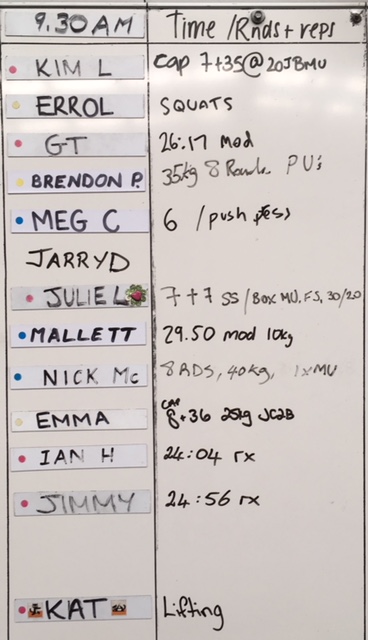 9.30AM Time /Rnds + reps
KIM L cap 7+35@20JBMU
ERROL SQUATS
GT 26:17 mod
BRENDON P. 35kg 8 Rounds PU's
MEG C 6 /push press
JARRYD
JULIE L 7+7 SS/Box MU, FS, 30/20
MALLETT 29.50 mod 10kg
NICK Mc 8RDS, 40kg, 1xMU
EMMA cap 8+36 25kg JC2B
IAN H 24:04 rx
JIMMY 24:56 rx
KAT Lifting